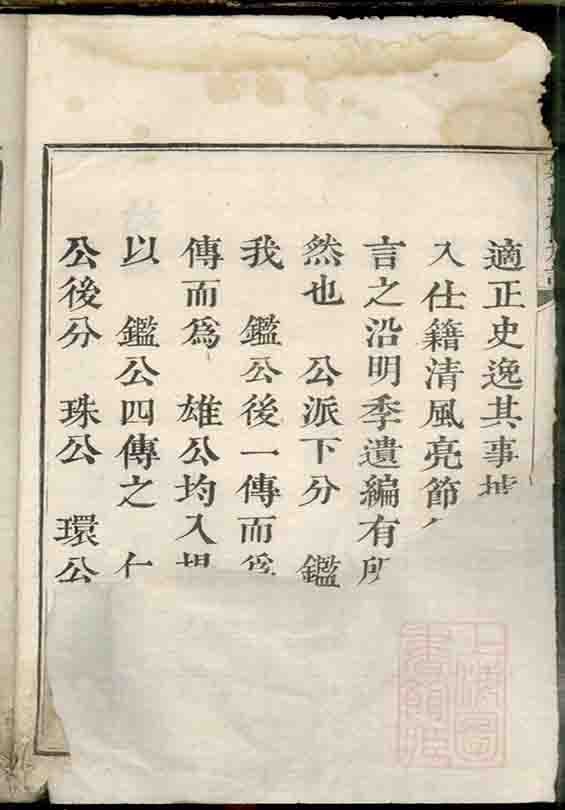 適正史逸其事
入仕籍清風亮節
言之沿明季遺編有所
然也 公派下分 鑑
我 鑑公後一傳而爲
傳而爲 雄公均入
以 鑑公四傳之 仁
公後分 珠公 環公
上海圖書館藏